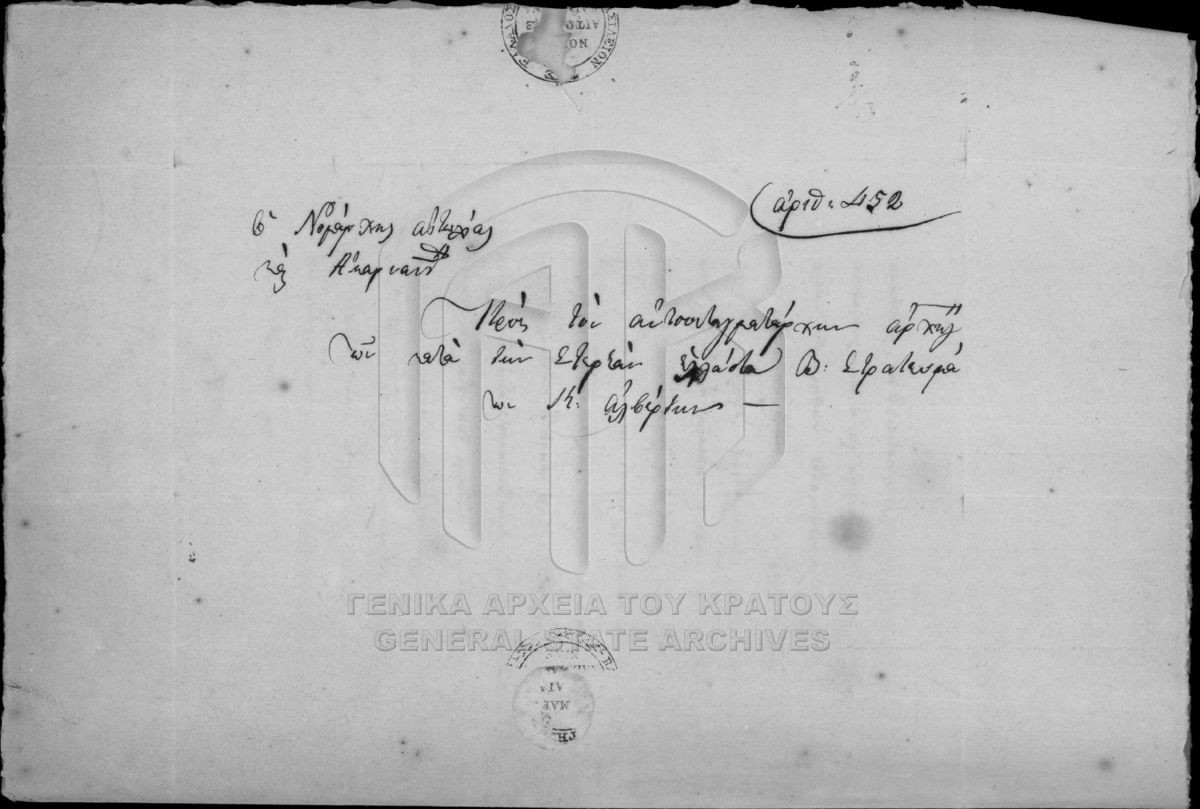 ἀριθ: 452
ὁ Νομάρχης αἰτωλίας
καὶ Ἀκαρνανί
Πρὸς τὸν ἀντισυνταγματάρχην ἀρχηγ
τῶν κατὰ τὴν Στερεὰν ἑλλάδα Β: Στρατευμά
των Κ:
ΓΕΝΙΚΑ ΑΡΧΕΙΑ ΤΟΥ ΚΡΑΤΟΥΣ
GENERAL STATE ARCHIVES